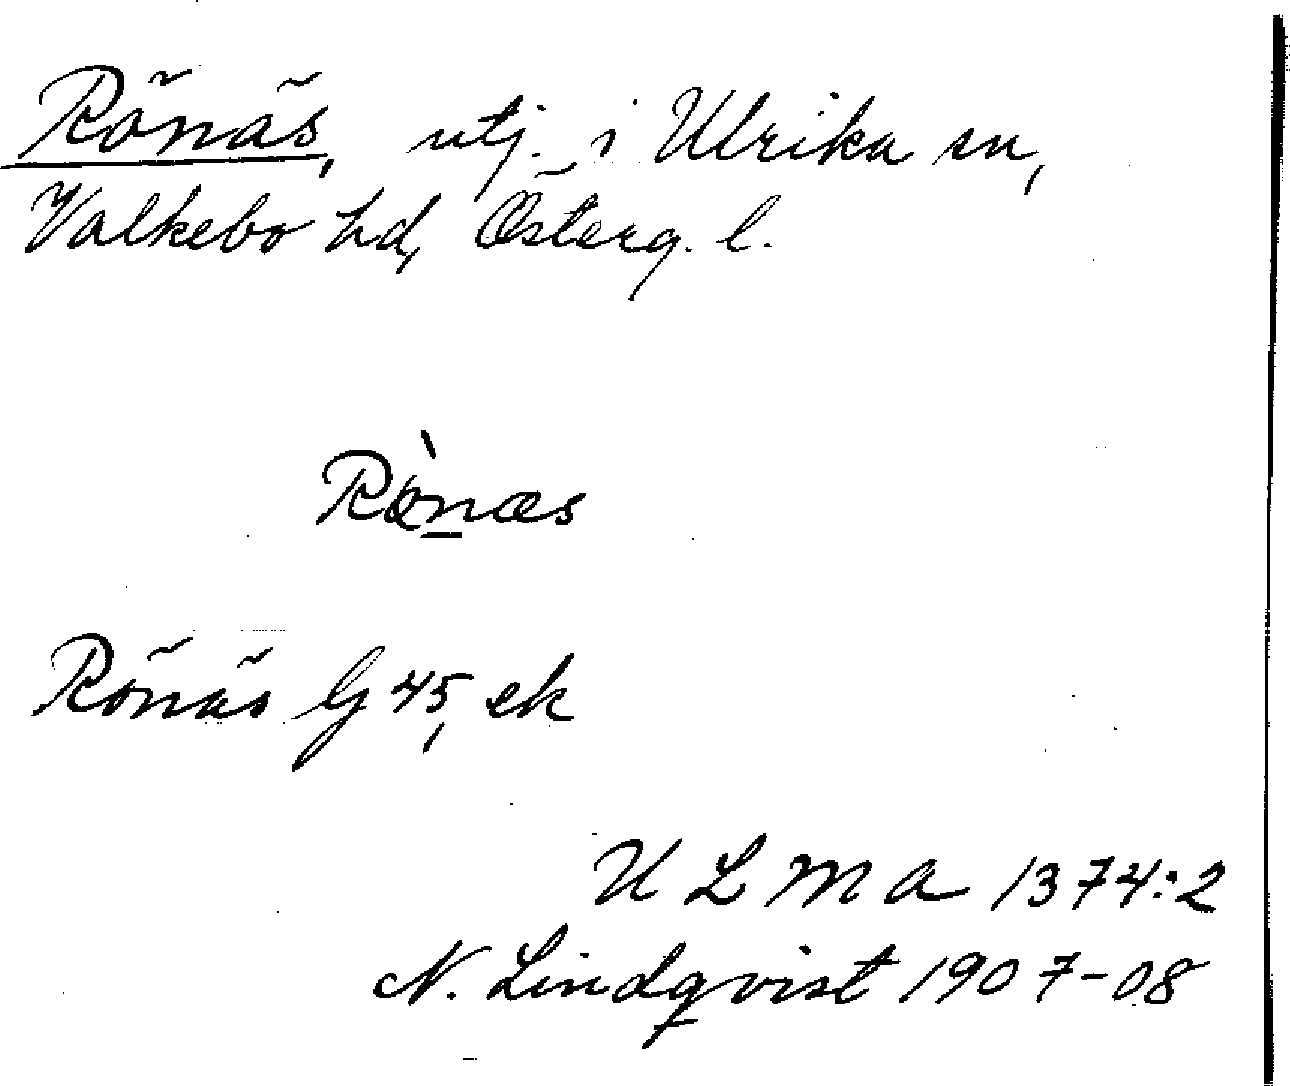 Rönäs, utj. i Ulrika sn,
Valkebo hd, Österg. l.
Rònæs
Rönäs G 45, ek
U L M A 1374:2
N. Lindqvist 1907-08